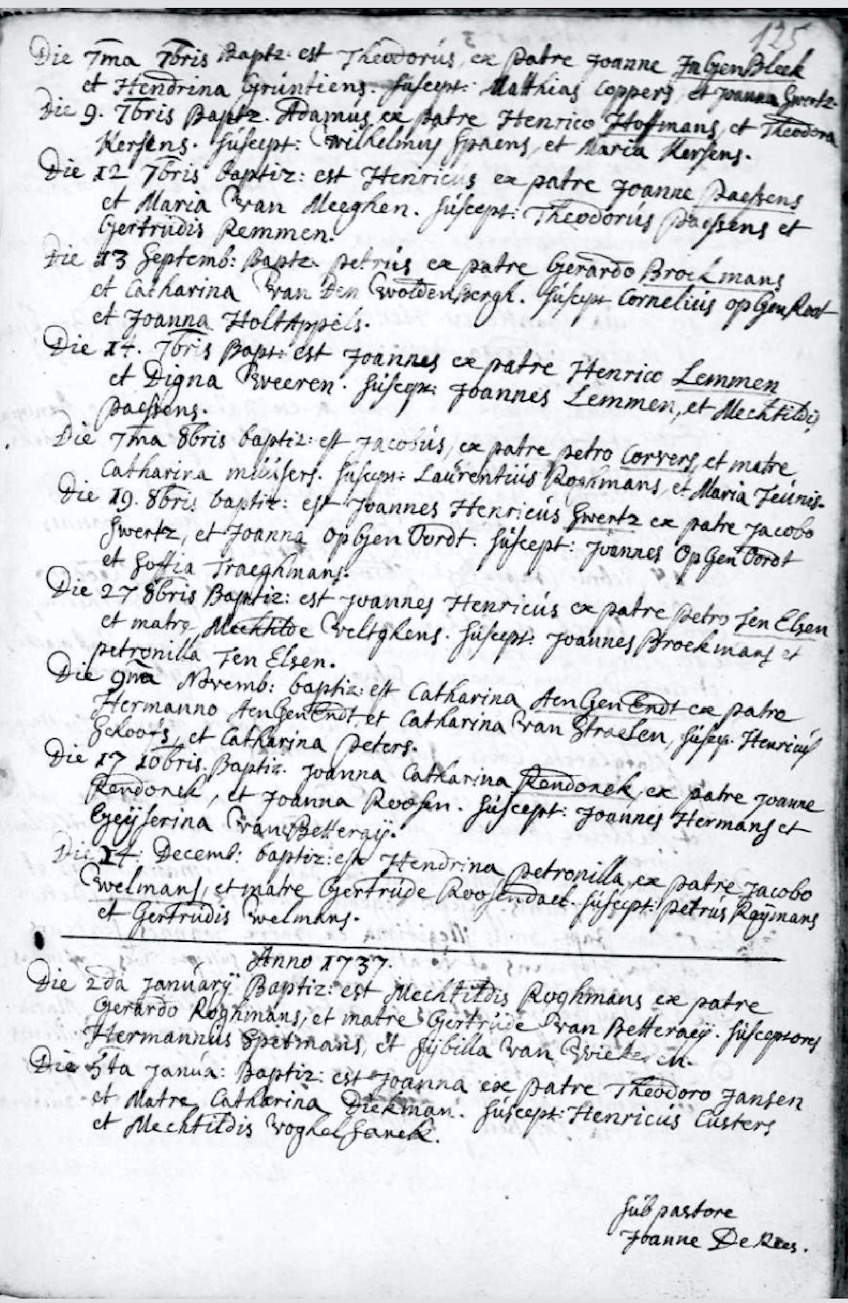 125
Die 7ma 7bris Baptz. est Theodorús, ex patre Joanne InGenBleek
et Hendrina Grúntiens. súscept: Matthias Coppers, et Joanna Swertz.
Die 9. 7bris Baptz. Adamus ex patre Henrico Hoffmans, et Theodora
Kersens. súscept: Wilhelmus Spaens, et Maria Kersens.
Die 12 7bris baptiz: est Henricus ex patre Joanne Paessens
et Maria Van Meeghen. súscept: Theodorús Paessens et
Gertrúdis Remmen.
Die 13 Septemb: Baptz. petrús ex patre Gerardo Brockmans
et Catharina Van Den Woldenbergh. súscept Cornelius opGenRoot
et Joanna HoltAppels.
Die 14. 7bris Bapt: est Joannes ex patre Henrico Lemmen
et Digna Weeren. súscept: Joannes Lemmen, et Mechtildis
paessens.
Die 7ma 8bris baptiz: est Jacobús, ex patre petro Corvers, et matre
Catharina múúsers. súscept: Laúrentiús Roghmans, et Maria Teúnis.
Die 19. 8bris baptiz: est Joannes Henricús Swertz ex patre Jacobo
Swertz, et Joanna OpGen Oordt. súscept: Joannes OpGen Oordt
et Soffia Traeghmans.
Die 27 8bris Baptiz: est Joannes Henricús ex patre petro Ten Elsen
et matre Mechtilde Veltghens. súscept: Joannes Brockmans et
petronilla Ten Elsen.
Die 9na Novemb: baptiz: est Catharina AenGenEndt ex patre
Hermanno AenGenEndt, et Catharina Van Straelen, súscp. Henriciús
et Catharina peters.
Die 17 10bris. Baptiz. Joanna Catharina Rendonck, ex patre Joanne
Rendonck, et Joanna Roosen. súscept: Joannes Hermans et
Van Betteraÿ.
Die 14. Decemb: baptiz: est Hendrina petronilla, ex patre Jacobo
Welmans, et matre Gertrúde Roosendael. súscept: petrús Raÿmans
et Gertrúdis Welmans.
Anno 1737.
Die 2da Januarÿ Baptiz: est Mechtildis Roghmans ex patre
Gerardo Roghmans, et matre Gertrúde Van Betteraeÿ. súsceptores
Hermannus Spetmans, et Sÿbilla Van
Die 5ta Janúa: Baptiz: est Joanna ex patre Theodoro Jansen
et Matre Catharina Diekman. súscept: Henricús Custers
et Mechtildis
súb pastore
Joanne De Rees.